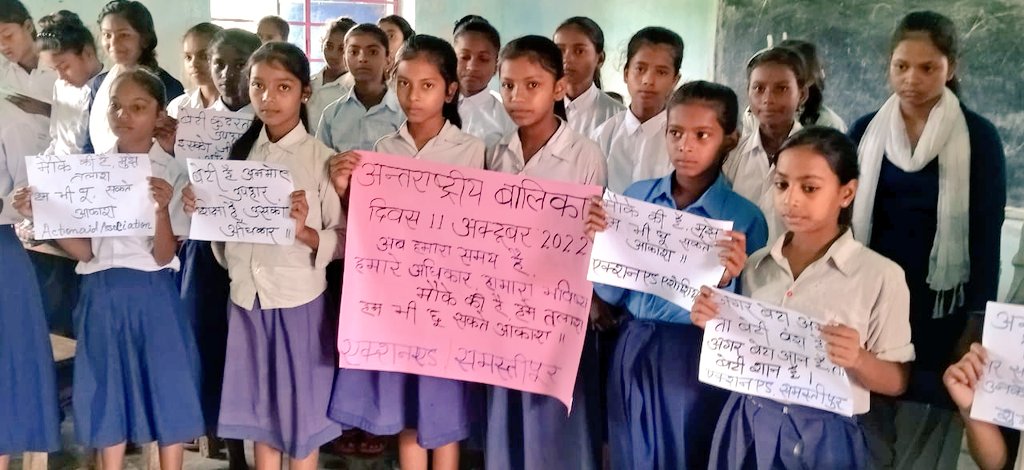 मौके की है, मुझ
तलाश
हम भी छू, सकते
आकाश
Actionaid Association
बेटी कुदरत
उपहार
इसको जी
बेटी है अनमोल
उपहार,
शिक्षा है उसका
अधिकार ॥
अन्तराष्ट्रीय बालिका
दिवस 11 अक्टूवर 2022
अव हमारा समय है,
हमारे अधिकार, हामारा भविष्य
मौके की है हमे तलाश
हम भी छू सकते आकाश ॥
एक्शनएड, समस्तीपुर
मौके की है, मुझ
हम भी छू सकते
आकाश ॥
एक्शन एड एसोशिए
अगर बेटा
तो बेटी वंश है
अगर बेटा आन है, तो
बेटी शान है।
एक्शनएड. समस्तीपुर